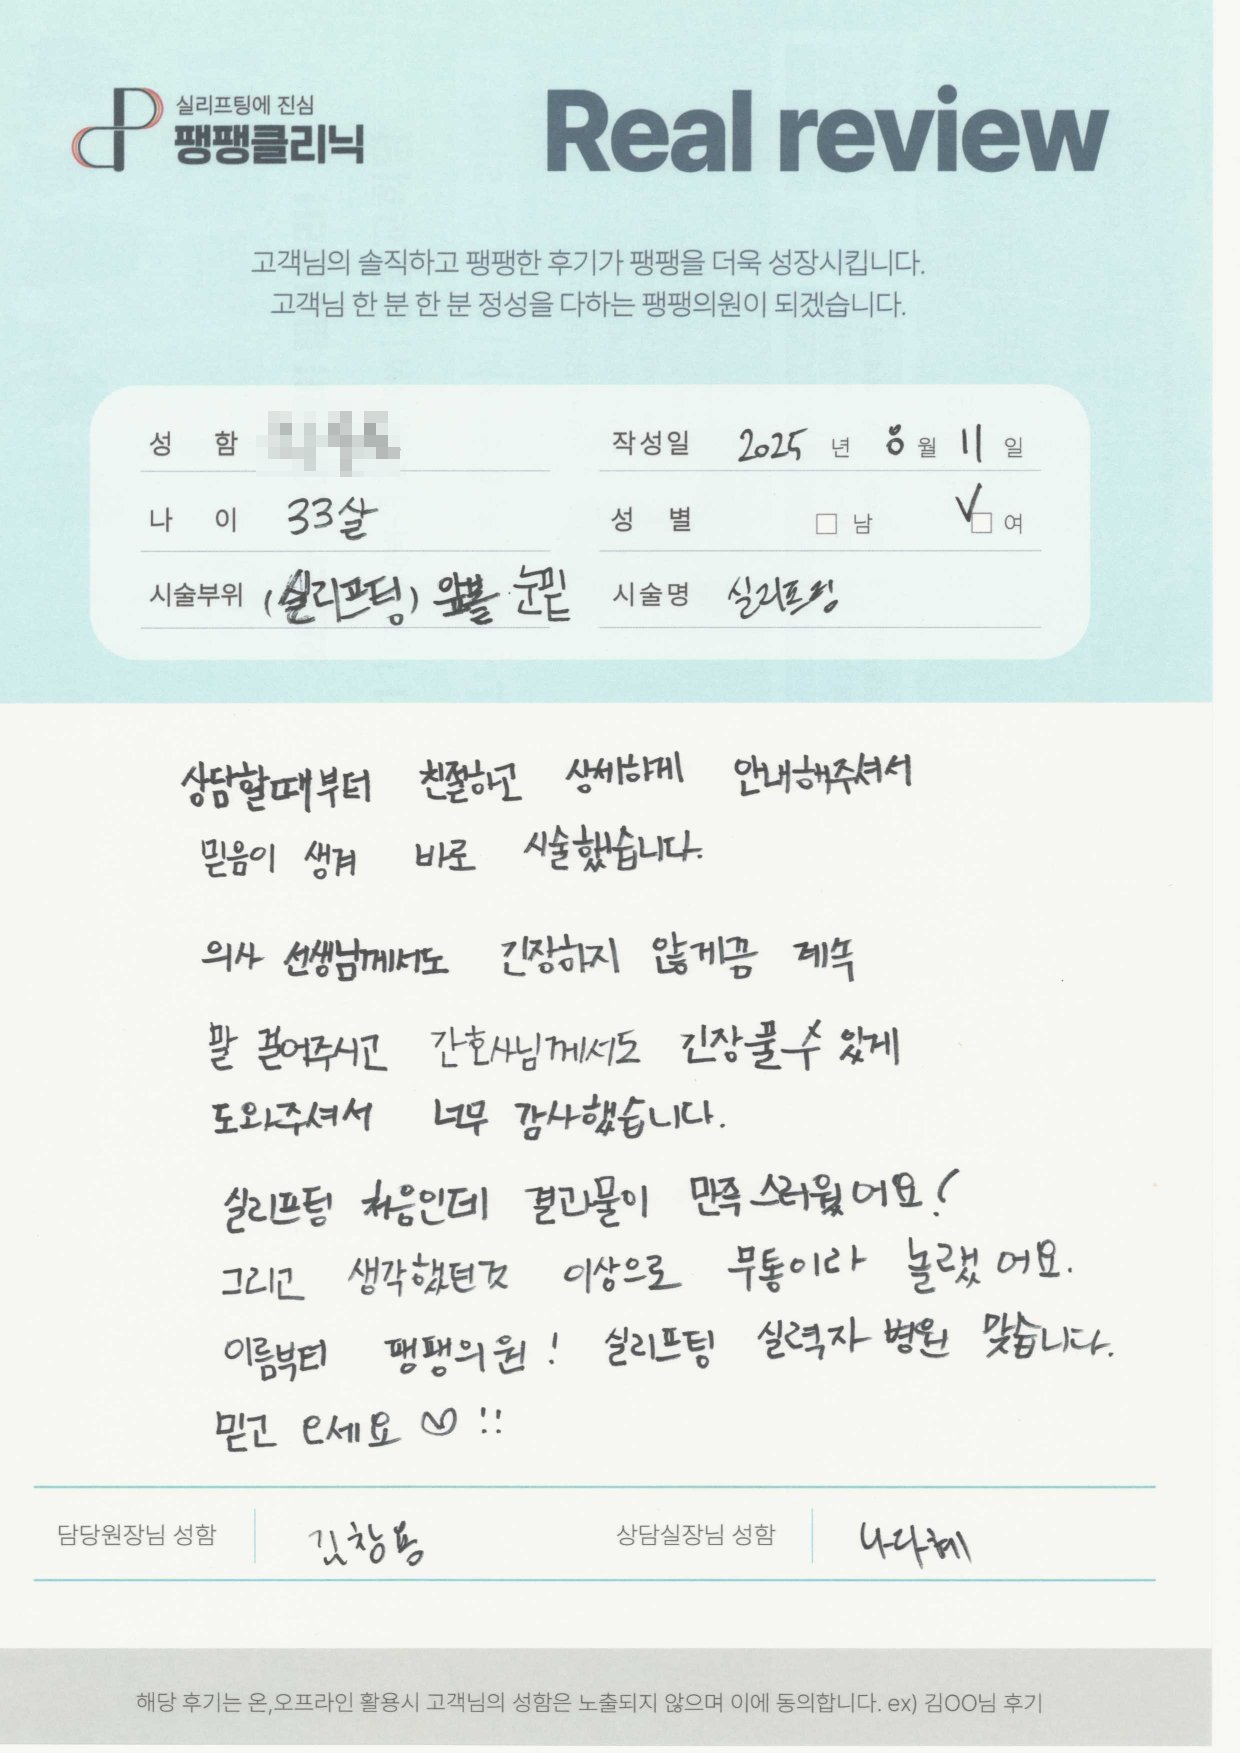 실리프팅에 진심
팽팽클리닉
Real review
고객님의 솔직하고 팽팽한 후기가 팽팽을 더욱 성장시킵니다.
고객님 한 분 한 분 정성을 다하는 팽팽의원이 되겠습니다.
성 함
작성일 2025 년 8 월 11 일
나 이 33살
성 별 남 여
시술부위 (실리프팅) 앞볼 눈밑
시술명 실리프팅
상담할때부터 친절하고 상세하게 안내해주셔서
믿음이 생겨 바로 시술했습니다.
의사 선생님께서도 긴장하지 않게끔 계속
말 걸어주시고 간호사님께서도 긴장풀수 있게
도와주셔서 너무 감사했습니다.
실리프팅 처음인데 결과물이 만족스러웠어요!
그리고 생각했던것 이상으로 무통이라 놀랬어요.
이름부터 팽팽의원! 실리프팅 실력자 병원 맞습니다.
믿고 오세요 ♡!!
담당원장님 성함 김창용
상담실장님 성함 나다혜
해당 후기는 온,오프라인 활용시 고객님의 성함은 노출되지 않으며 이에 동의합니다. ex) 김OO님 후기